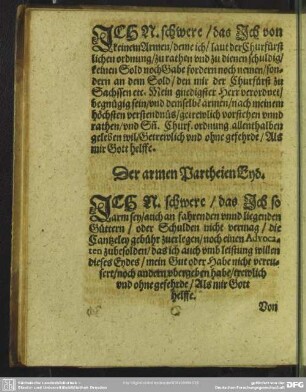 ICH N. schwere / das Ich von
keinem Armen / deme ich / laut der Churfürst
lichen ordnung / zu rathen vnd zu dienen schuldig /
keinen Sold noch Gabe fordern noch nemen / son-
dern an dem Sold / den mir der Churfürst zu
Sachssen etc. Mein gnedigster Herr verordnet /
begnügig sein / vnd demselbē armen / nach meinem
höchsten verstendnüs / getrewlich vorstehen vnnd
rathen / vnd Churf. ordnung allenthalben
geleben wil / Getrewlich vnd ohne gefehrde / Als
mir Gott helffe.
Der armen Partheien Eyd.
ICH N. schwere / das Ich so
arm sey / auch an fahrenden vnnd liegenden
Güttern / oder Schulden nicht vermag / die
Cantzeley gebühr zuerlegen / noch einen Advoca-
ten zubesolden / das ich auch vmb leistung willen
dieses Eydes / mein Gut oder Habe nicht vereu-
sert / noch andern vbergeben habe / trewlich
vnd ohne gefehrde / Als mir Gott
helffe.
Von